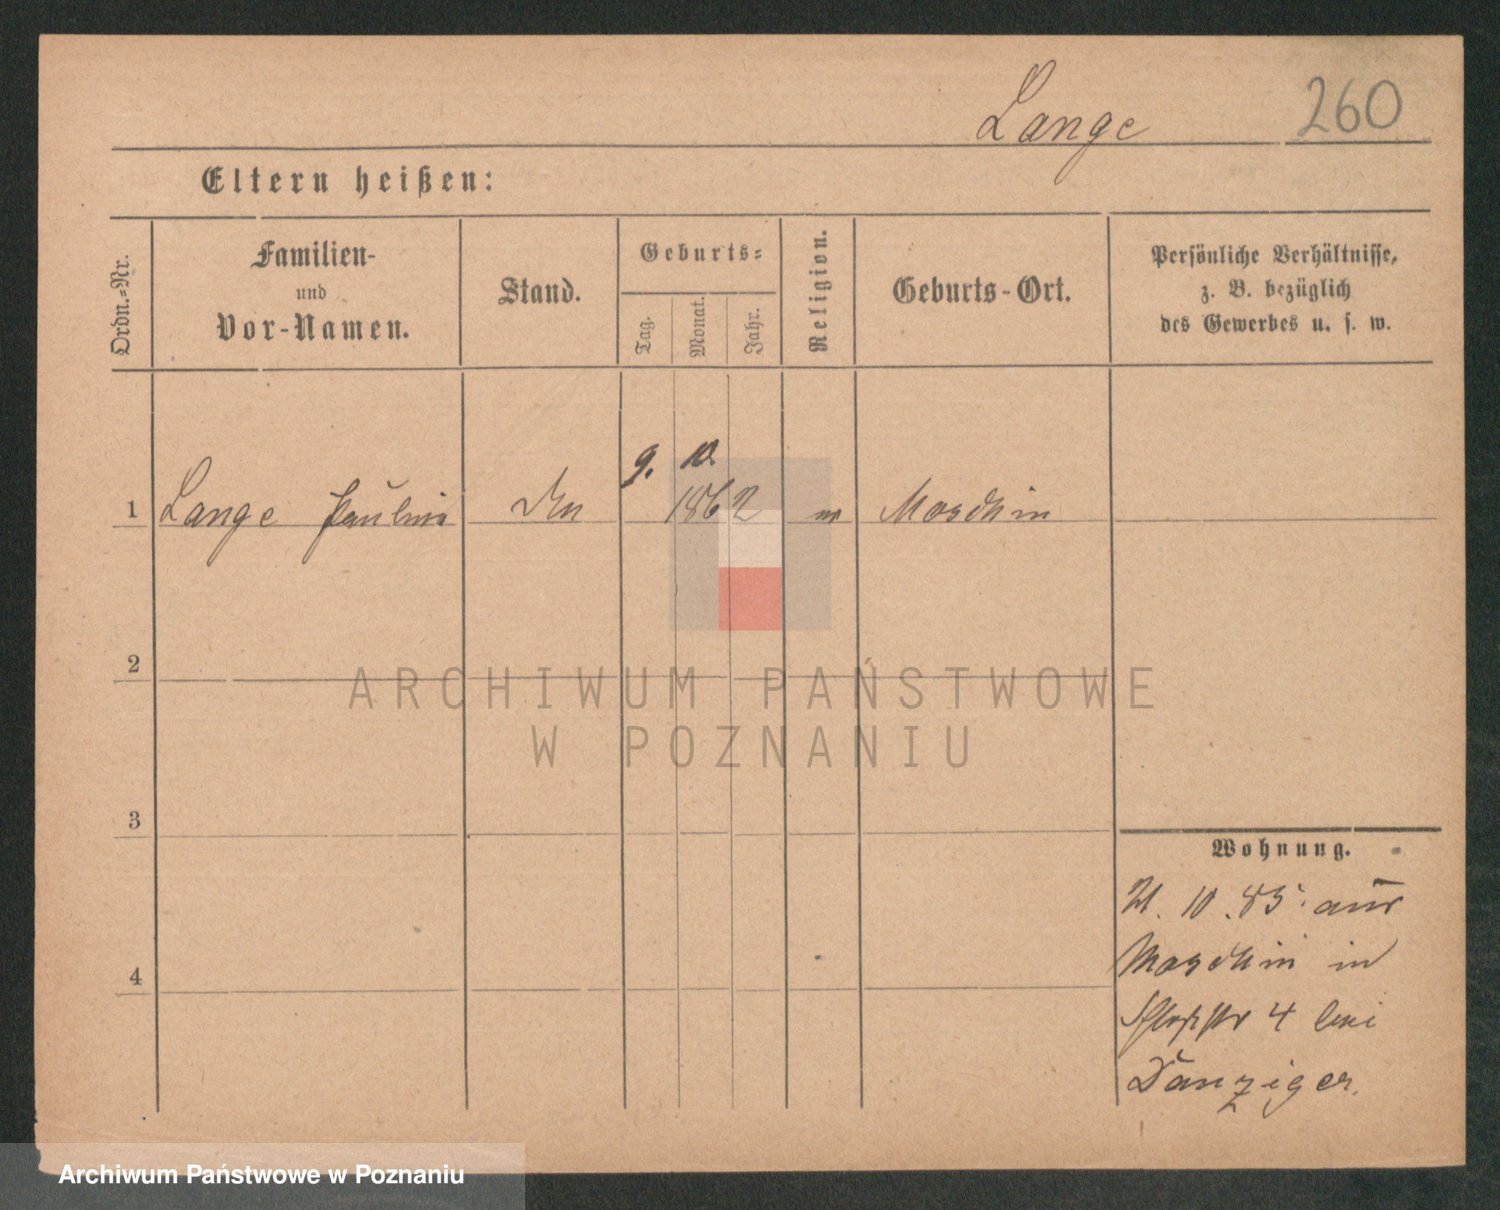 Lange 260
Eltern heißen:
Ordn.-Nr.
Familien-
und
Vor-Namen.
Stand.
Geburts-
Tag.
Monat.
Jahr.
Religion.
Geburts-Ort.
Persönliche Verhältnisse,
z. B. bezüglich
des Gewerbes u. s. w.
9. 10.
1 Lange Pauline 1862 Moschin
2
ARCHIWUM PAŃSTWOWE
W POZNANIU
3
Wohnung.
21. 10. 85. aus
Moschin in
4
Schloßstr 4 bei
Danziger.
Archiwum Państwowe w Poznaniu